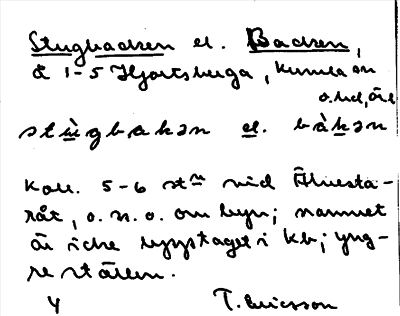 Stugbacken el. Backen,
å 1-5 Hjortsberga, Kumla sn
o. hd, Ör.
stùgbakən el. bàkən
Koll. 5-6 st vid Älvesta-
råt, o.n.o. om byn; namnet
är icke upptaget i kb; yng-
re ställen.
4 T. Ericsson